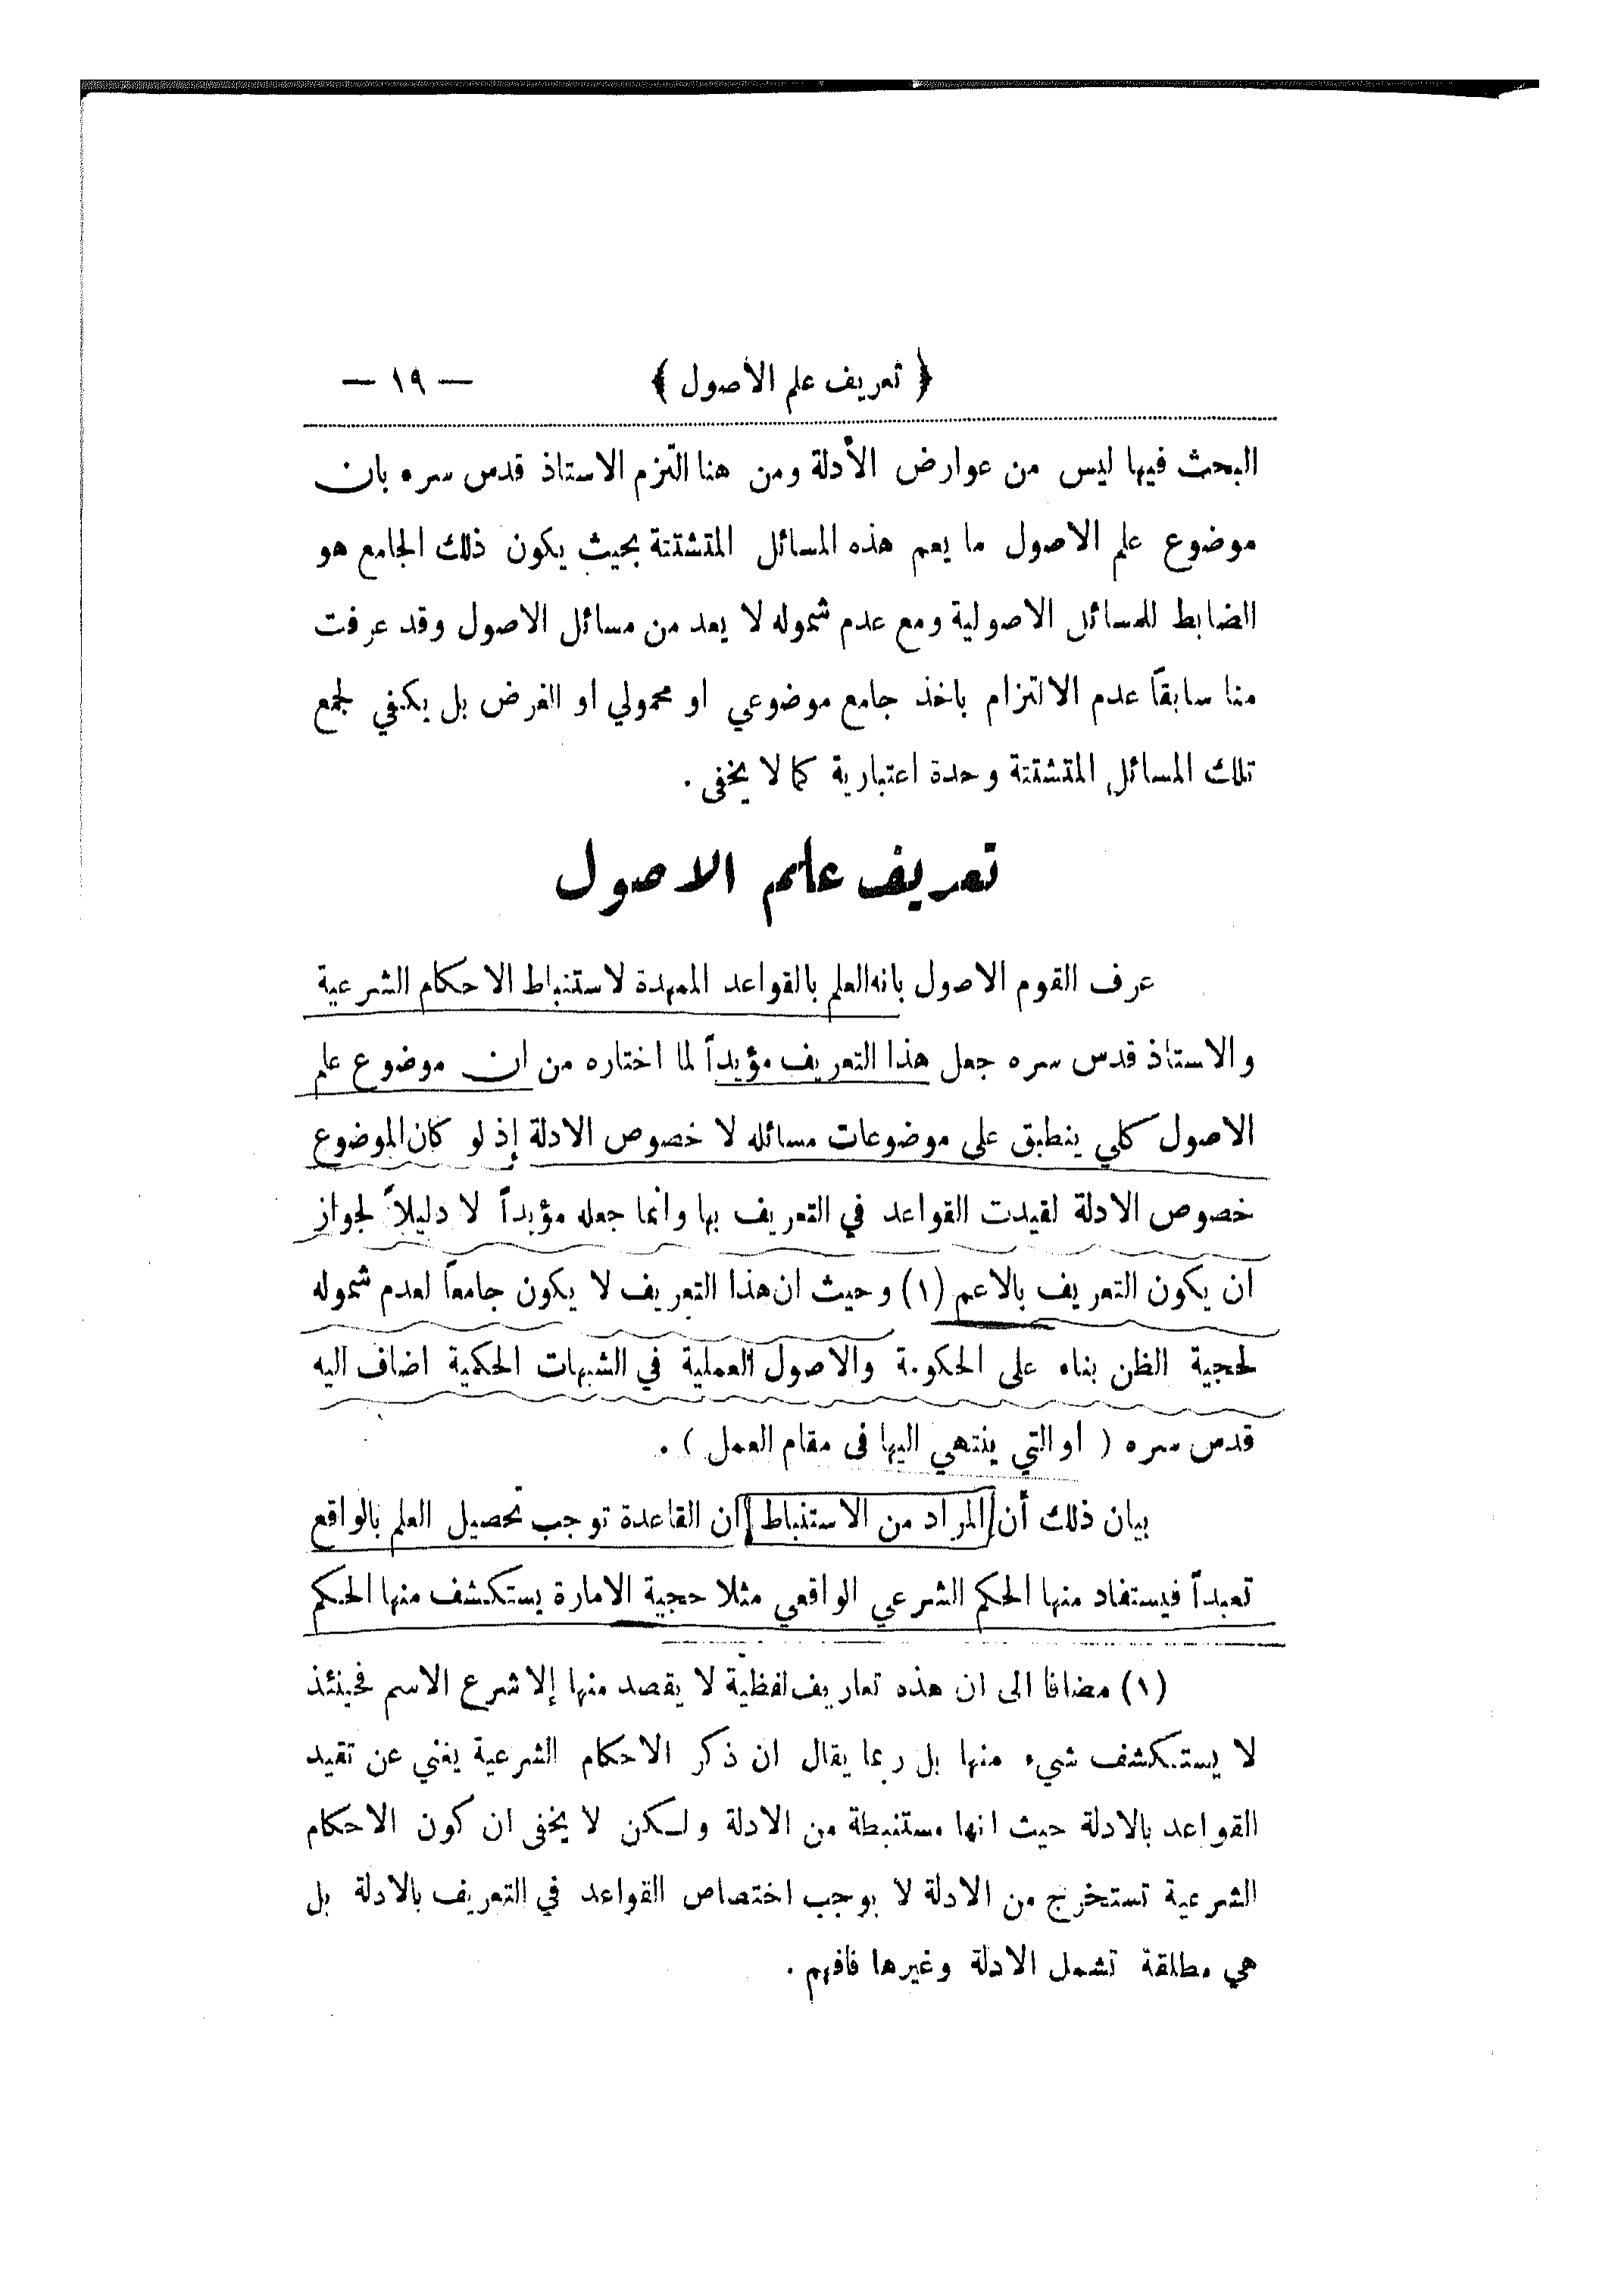 ﴿ تعريف علم الأصول ﴾ — ١٩ —
البحث فيها ليس من عوارض الأدلة ومن هنا التزم الاستاذ قدس سره بان
موضوع علم الاصول ما يعم هذه المسائل المتشتتة بحيث يكون ذلك الجامع هو
الضابط للمسائل الاصولية ومع عدم شموله لا يعد من مسائل الاصول وقد عرفت
منا سابقاً عدم الالتزام باخذ جامع موضوعي او محمولي او الغرض بل يكفي لجمع
تلك المسائل المتشتتة وحدة اعتبارية كما لا يخفى .
تعريف علم الاصول
عرف القوم الاصول بانه العلم بالقواعد الممهدة لاستنباط الاحكام الشرعية
والاستاذ قدس سره جعل هذا التعريف مؤيداً لما اختاره من ان موضوع علم
الاصول كلي ينطبق على موضوعات مسائله لا خصوص الادلة إذ لو كان الموضوع
خصوص الادلة لقيدت القواعد في التعريف بها وانما جعله مؤيداً لا دليلاً لجواز
ان يكون التعريف بالاعم (١) وحيث ان هذا التعريف لا يكون جامعاً لعدم شموله
لحجية الظن بناء على الحكومة والاصول العملية في الشبهات الحكمية اضاف اليه
قدس سره ( او التي ينتهي اليها في مقام العمل ) .
بيان ذلك أن المراد من الاستنباط ان القاعدة توجب تحصيل العلم بالواقع
تعبداً فيستفاد منها الحكم الشرعي الواقعي مثلا حجية الامارة يستكشف منها الحكم
(١) مضافا الى ان هذه تعاريف لفظية لا يقصد منها إلا شرع الاسم فحينئذ
لا يستكشف شيء منها بل ربما يقال ان ذكر الاحكام الشرعية يغني عن تقيد
القواعد بالادلة حيث انها مستنبطة من الادلة ولكن لا يخفى ان كون الاحكام
الشرعية تستخرج من الادلة لا يوجب اختصاص القواعد في التعريف بالادلة بل
هي مطلقة تشمل الادلة وغيرها فافهم .